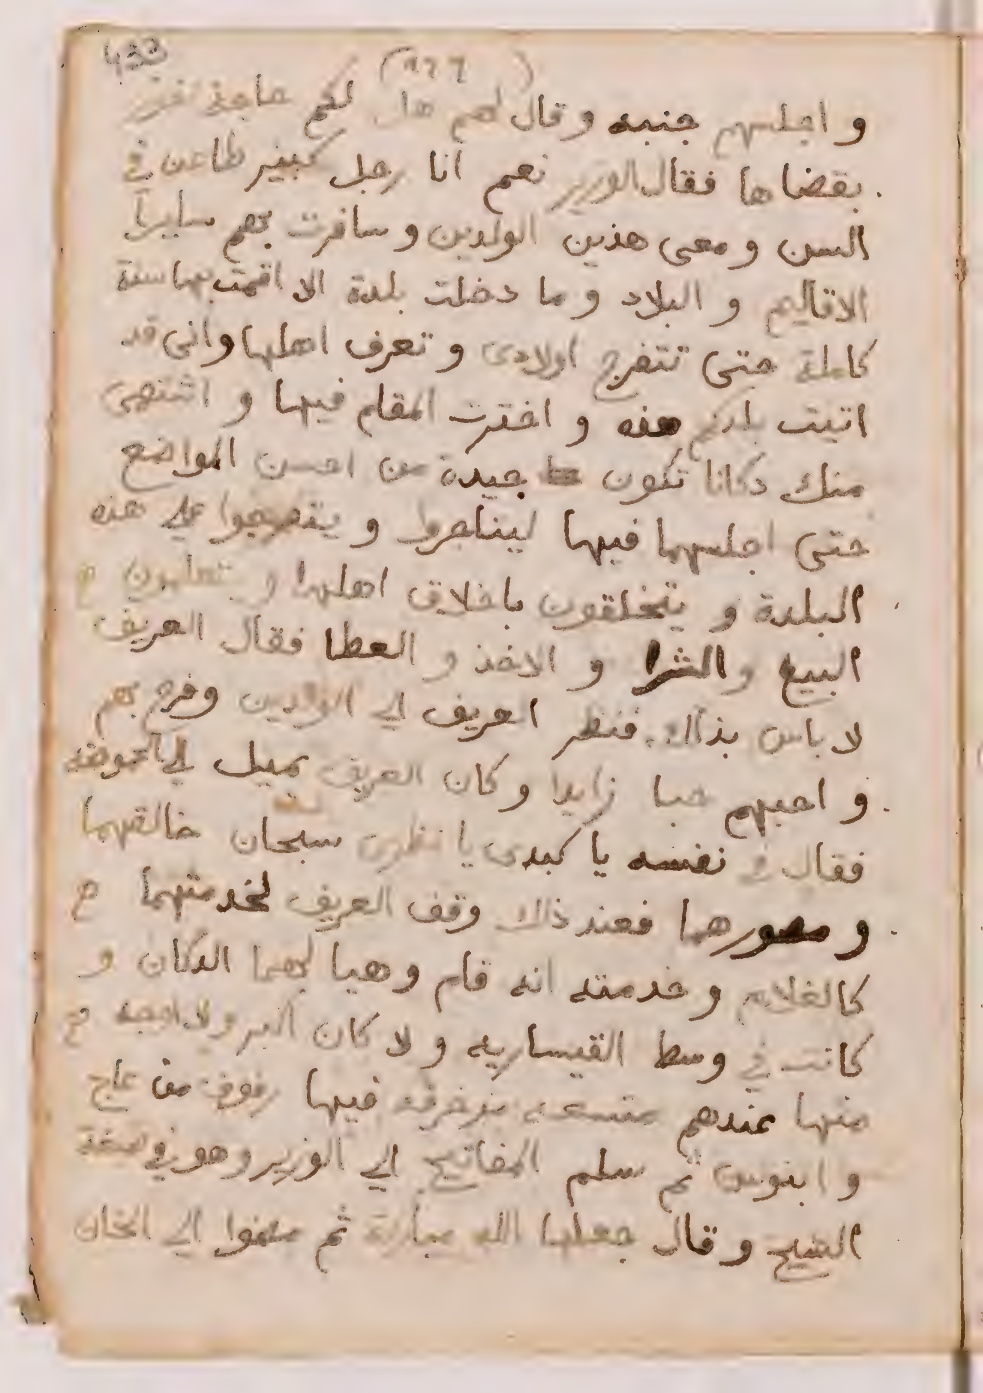 433
(١٢٦)
و اجلسهم جنبه و قال لهم هل لكم حاجة نفوز
بقضاها فقال الوزير نعم انا رجل كبير طاعن في
السن و معى هذين الولدين و سافرت بهم سايرا
الاقاليم و البلاد و ما دخلت بلدة الا اقمت بها سنة
كاملة حتى تتفرج اولادى و تعرف اهلها وانى قد
اتيت بلدكم هذه و اخترت المقام فيها و اشتهى
منك دكانا تكون جيدة من احسن المواضع
حتى اجلسهما فيها ليتاجروا و يتفرجوا على هذه
البلدة و يتخلقون باخلاق اهلها و يتعلمون
البيع والشرا و الاخذ و العطا فقال العريف
لا باس بذالك فنظر العريف الى الوالدين وفرح بهم
و احبهم حبا زايدا و كان العريف يميل الى
فقال في نفسه يا كبدى يا نظرى سبحان خالقهما
و مصورهما فعند ذالك وقف العريف لخدمتهما
كالغلام و خدمته انه قام وهيا لهما الدكان و
كانت في وسط القيساريه و لا كان اكبر ولا اوجه
منها عندهم متسعه مزخرفه فيها رفوف من عاج
و ابنوس ثم سلم المفاتيح الى الوزير وهو في صفة
الشيخ و قال جعلها الله مباركة ثم مضوا الى الخان